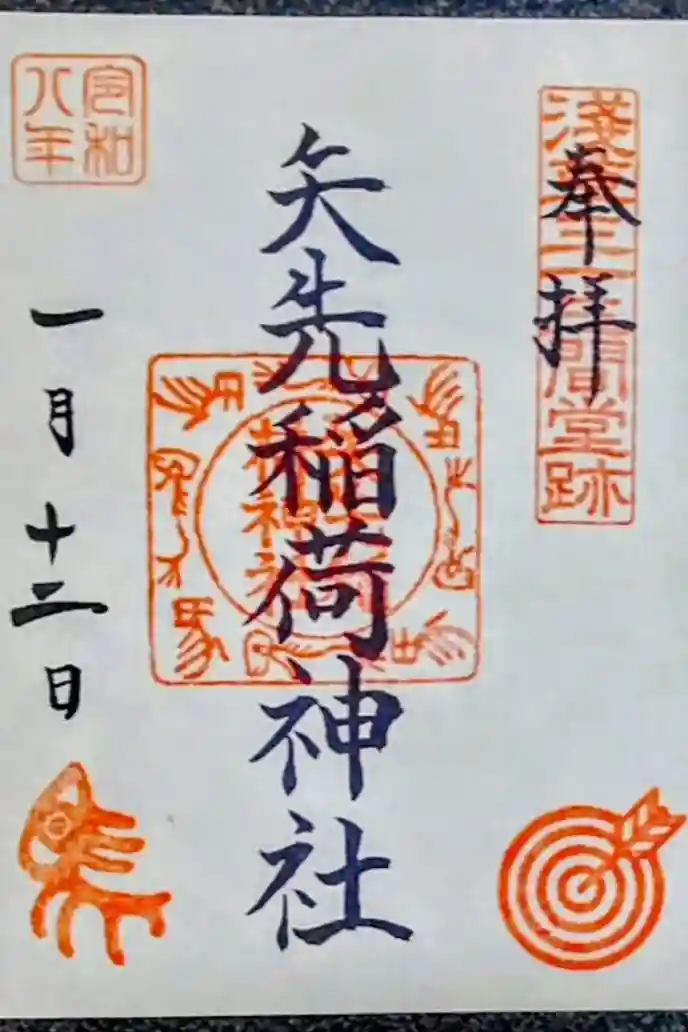 奉拝
淺草三十三間堂跡
矢先稲荷神社
令和八年
一月十二日